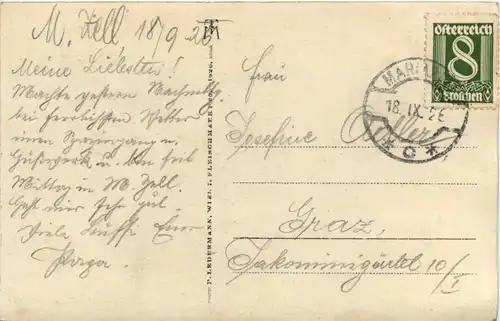 M. Zell 18/9 26
Meine Liebsten!
Machte gestern Nachmittg
bei herrlichstem Wetter
einen Spaziergang u.
u. bin seit
Mittag in M. Zell.
Geht mir sehr gut.
Viele Bussi Euer
Papa.
P. LEDERMANN, WIEN, I., FLEISCHMARKT
Österreich
8
Groschen
MARIA
18. IX. 26
Frau
Josefine
Graz,
Jakominigürtel 10/I